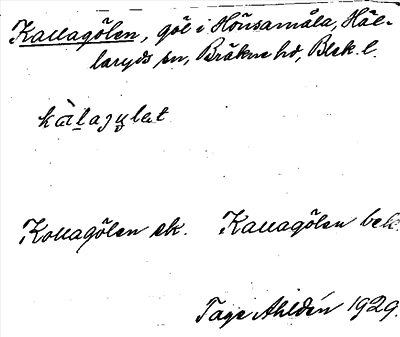 Kallagölen, göl i Hönsamåla, Häl-
laryds sn, Bräkne hd, Blek. l.
Kollagölen ek. Kallagölen bek.
Tage Ahldén 1929.